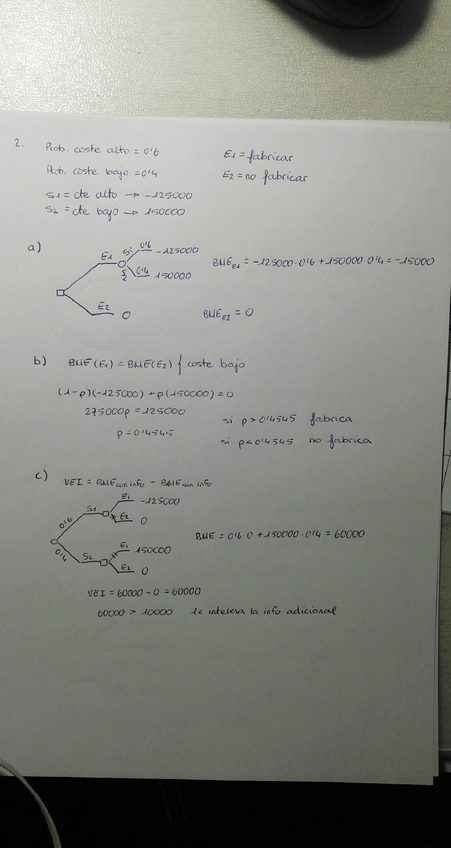 2.
Prob. coste alto = 0'6
E1 = fabricar
Prob. coste bajo = 0'4
E2 = no fabricar
S1 = cte alto → -125000
S2 = cte bajo → 150000
a)
E1 S1 0'6 -125000
S2 0'4 150000
BME E1 = -125000·0'6 + 150000·0'4 = -15000
E2 0
BME E2 = 0
b) BME (E1) = BME (E2) / coste bajo
(1-p)(-125000) + p(150000) = 0
275000p = 125000
p = 0'4545
si p > 0'4545 fabrica
si p < 0'4545 no fabrica
c) VEI = BME con info - BME sin info
0'6 S1 E1 -125000
E2 0
BME = 0'6·0 + 150000·0'4 = 60000
0'4 S2 E1 150000
E2 0
VEI = 60000 - 0 = 60000
60000 > 10000 le interesa la info adicional